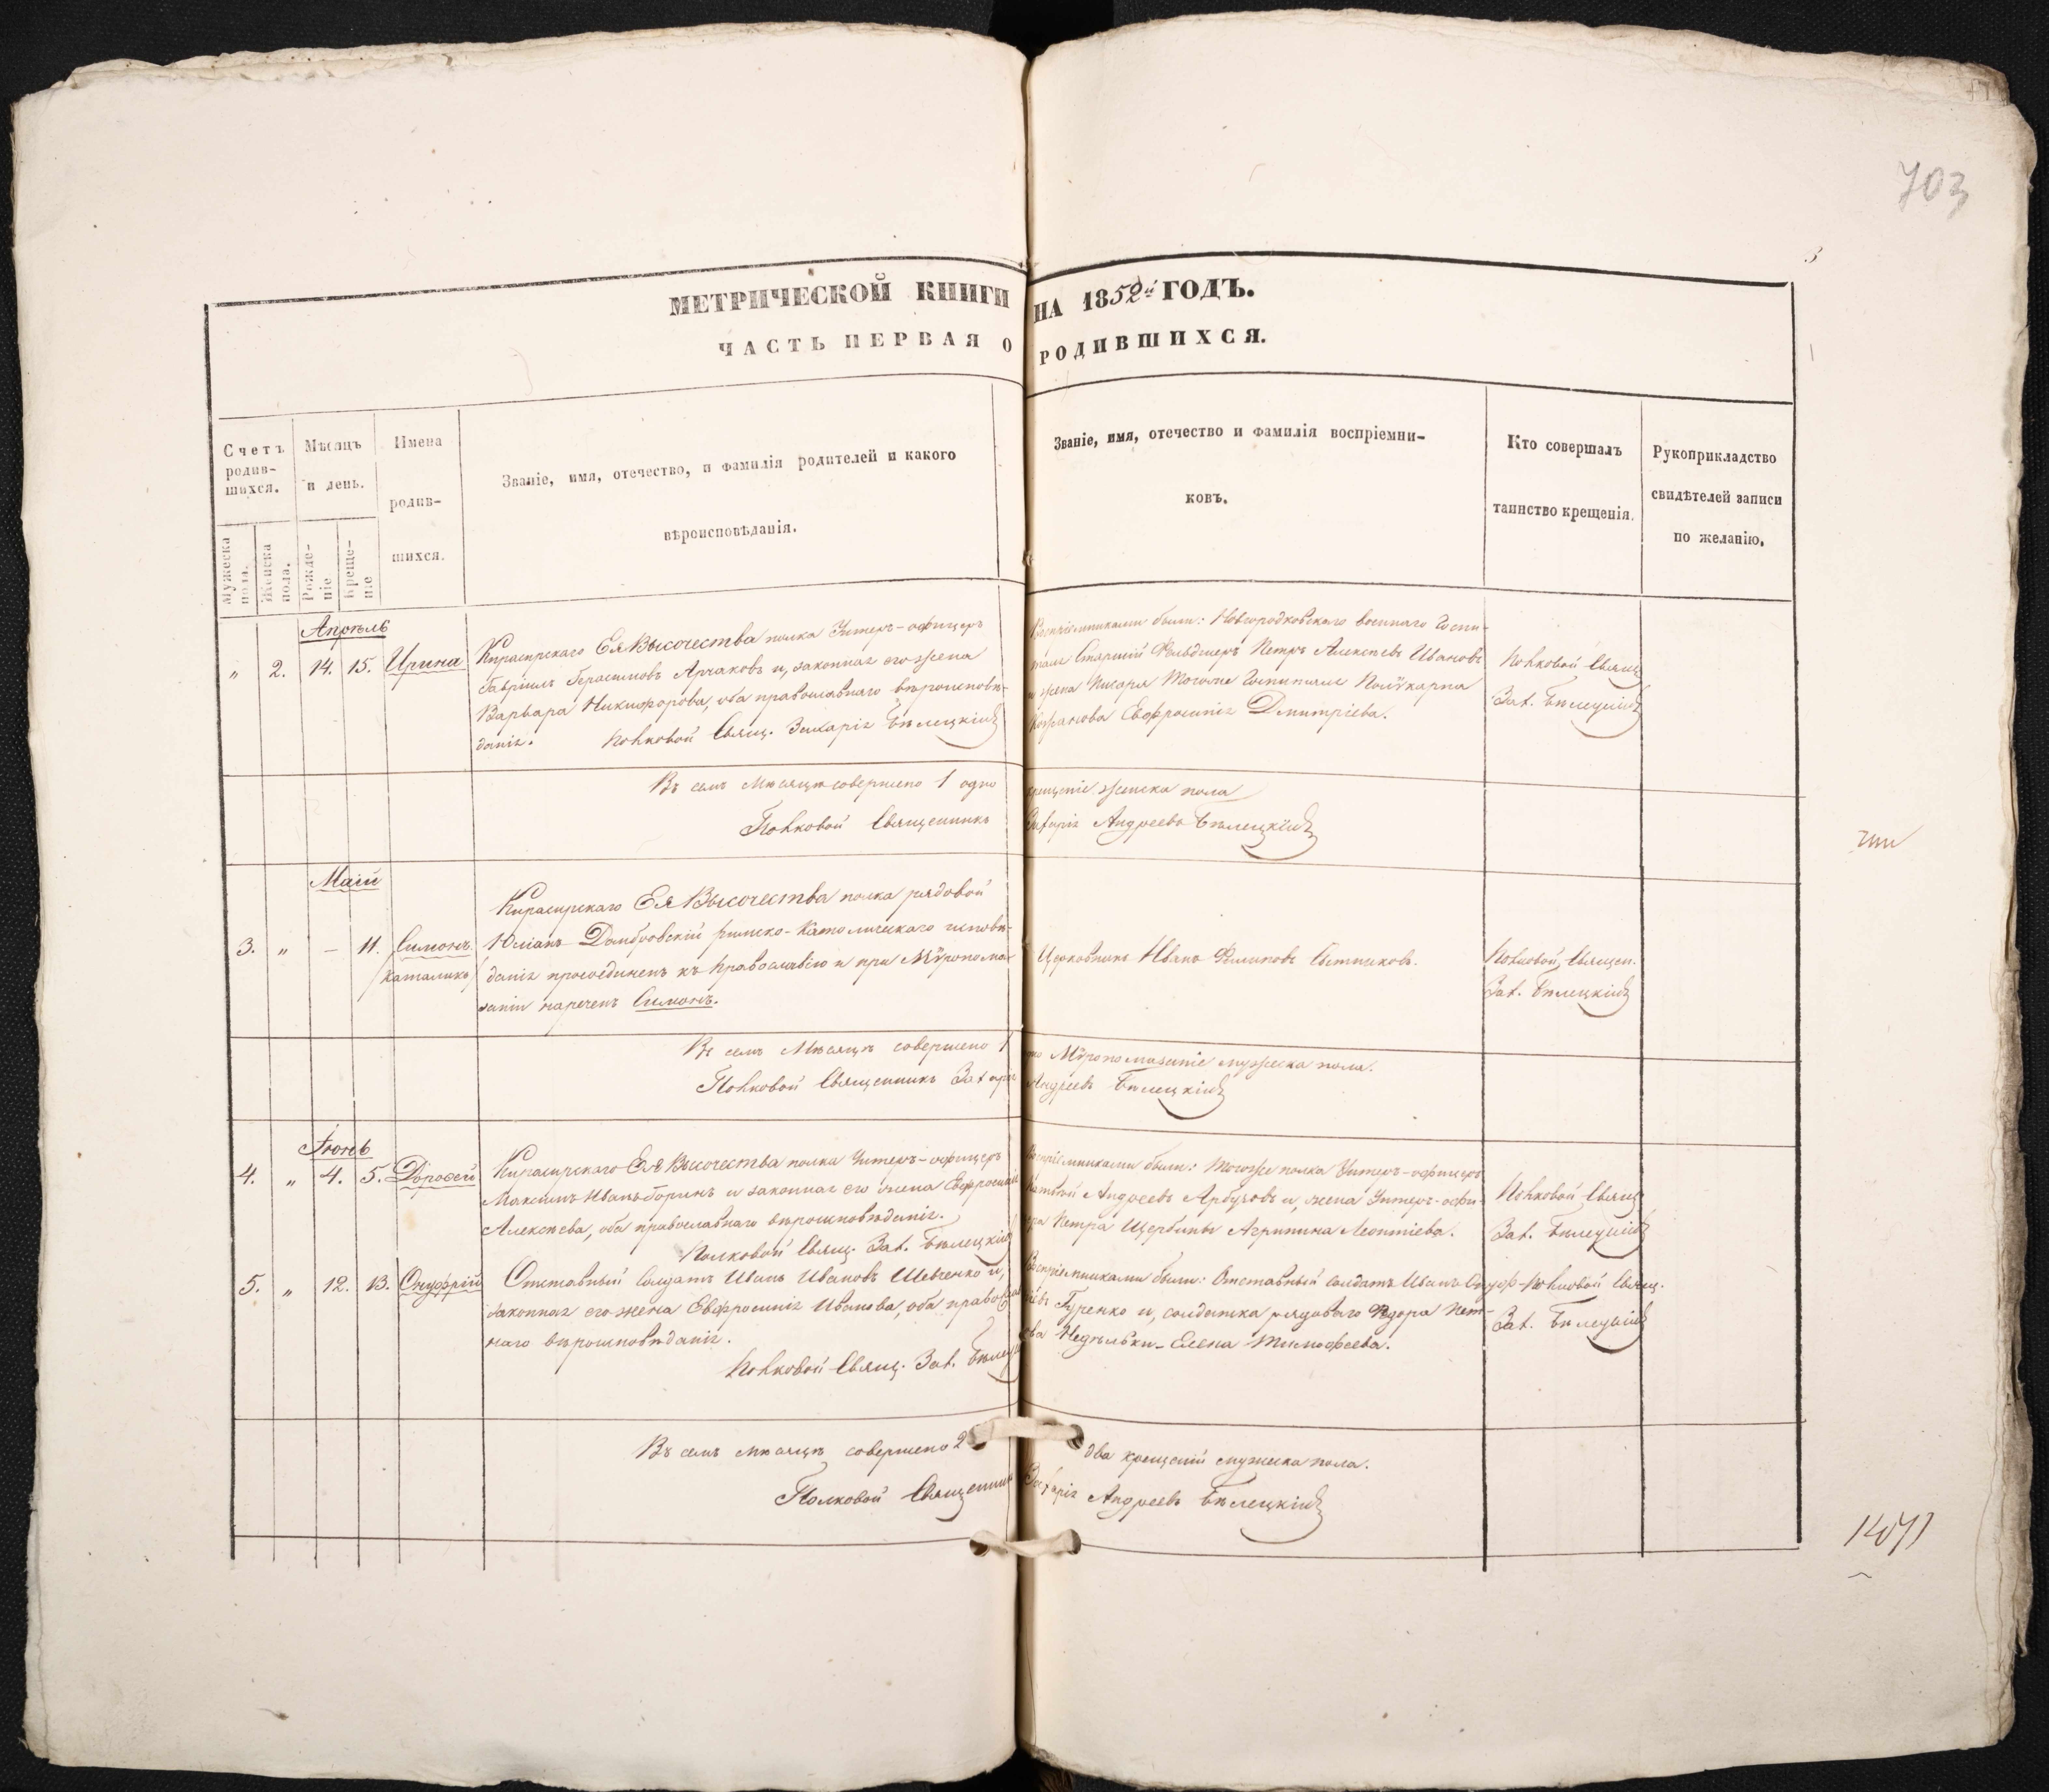 703
МЕТРИЧЕСКОЙ КНИГИ НА 1852й ГОДЪ.
ЧАСТЬ ПЕРВАЯ О РОДИВШИХСЯ.
Счетъ родив-шихся.
Мужеска пола.
Женска пола.
Мѣсяцъ и день.
Рожде-ніе
Креще-ніе
Имена родив-шихся.
Званіе, имя, отечество, и фамилія родителей и какого
вѣроисповѣданія.
Званіе, имя, отечество и фамилія воспріемни-
ковъ.
Кто совершалъ
таинство крещенія.
Рукоприкладство
свидѣтелей записи
по желанію.
Апрѣль
" 2. 14. 15. Ирина
Кирасирскаго Ея Высочества полка Унтеръ-офицеръ
Гавріилъ Герасимовъ Арчаковъ и, законная его жена
Варвара Никифорова, оба православнаго вѣроисповѣ-
данія. Полковой Свящ. Захарія Бѣлецкій
Воспріемниками были: Новгородковскаго военнаго Госпи-
таля Старшій Фельдшеръ Петръ Алексѣевъ Ивановъ
и жена Писаря Тогоже Госпиталя Полӱкарпа
Евфросинія Дмитріева.
Полковой Свящ.
Зах. Бѣлецкій
Въ семъ мѣсяцѣ совершено 1 одно крещеніе женска пола
Полковой Священникъ Захарія Андреевъ Бѣлецкій
Маій
3. " – 11. Симонъ
/католикъ/
Кирасирскаго Ея Высочества полка рядовой
Юліанъ Домбровскій римско-Католическаго исповѣ-
данія присоединенъ къ православію и при Мӱропома-
заніи нареченъ Симонъ.
Церковникъ Иванъ Филиповъ Сытниковъ.
Полковой Священ.
Зах. Бѣлецкій
Въ семъ Мѣсяцѣ совершено 1 одно Мӱропомазаніе мужеска пола.
Полковой Священникъ Захарія Андреевъ Бѣлецкій
Іюнь
4. " 4. 5. Дорофей
Кирасирскаго Ея Высочества полка Унтеръ-офицеръ
Максимъ Ивановъ Боринъ и законная его жена Евфросинія
Алексѣева, оба православнаго вѣроисповѣданія.
Полковой Свящ. Зах. Бѣлецкій
Воспріемниками были: Тогоже полка Унтеръ-офицеръ
Андреевъ Арбузовъ и, жена Унтеръ-офи-
цера Петра Щербины Агрипина Леонтіева.
Полковой Свящ.
Зах. Бѣлецкій
5. " 12. 13. Онуфрій
Отставный Солдатъ Иванъ Ивановъ Шевченко и,
законная его жена Евфросинія Иванова, оба православ-
наго вѣроисповѣданія.
Полковой Свящ. Зах. Бѣлецкій
Воспріемниками были: Отставный солдатъ Иванъ Онуф-
ріевъ Гуренко и, солдатка рядоваго Ѳедора Пет-
рова Недѣльки – Елена Тимофеева.
Полковой Свящ.
Зах. Бѣлецкій
Въ семъ мѣсяцѣ совершено 2 два крещеніи мужеска пола.
Полковой Священникъ Захарія Андреевъ Бѣлецкій